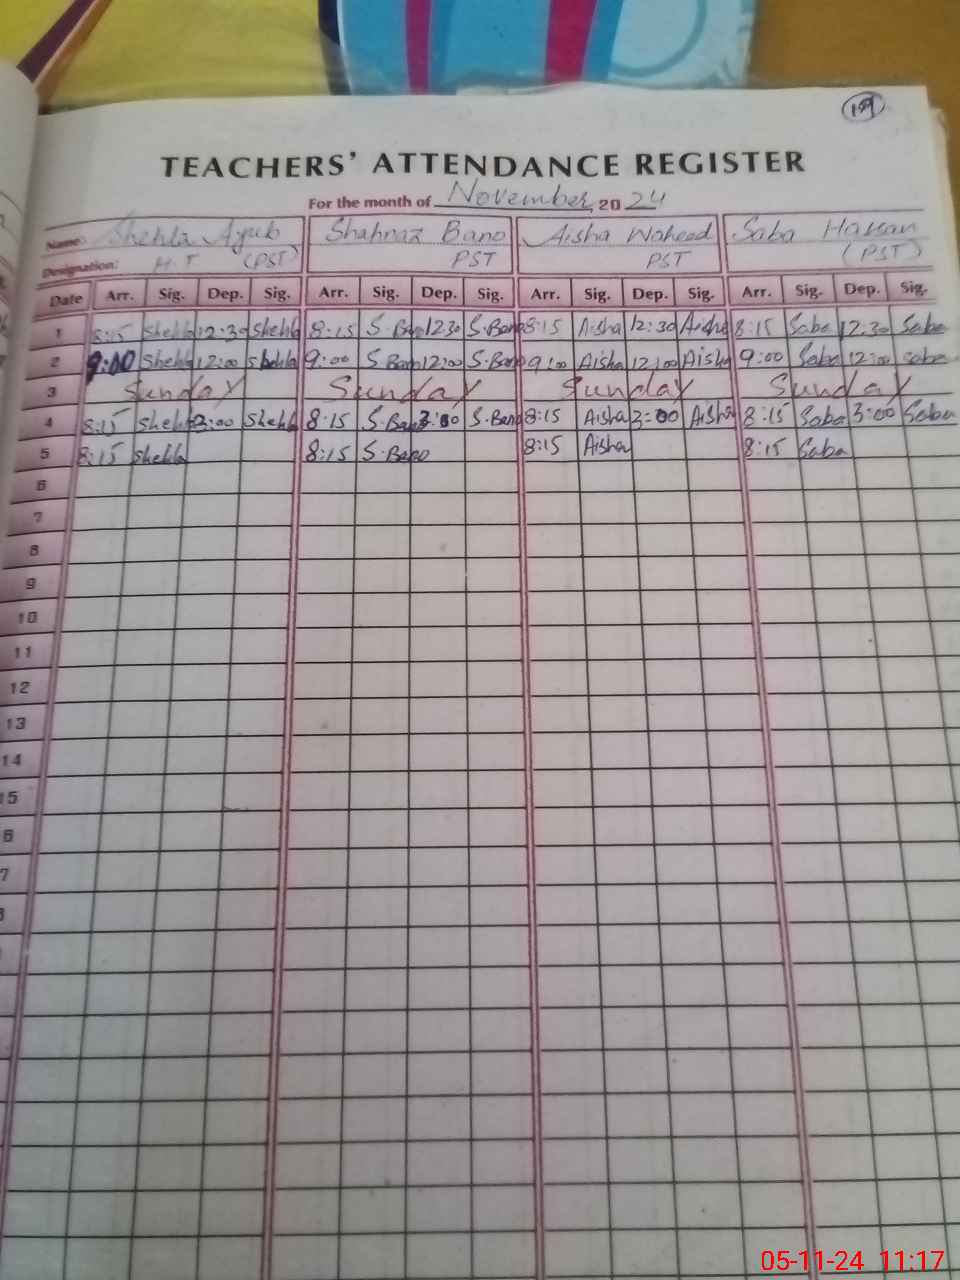 TEACHERS' ATTENDANCE REGISTER
For the month of November 2024
Name: Shehla Ayub Shahnaz Bano Aisha Waheed Saba Hassan
Designation: H.T (PST) PST PST (PST)
Date Arr. Sig. Dep. Sig. Arr. Sig. Dep. Sig. Arr. Sig. Dep. Sig. Arr. Sig. Dep. Sig.
1 8:15 Shehla 12:30 Shehla 8:15 S.Bano 1230 S.Bano 8:15 Aisha 12:30 Aisha 8:15 Saba 12:30 Saba
2 9:00 Shehla 12:00 Shehla 9:00 S Bano 12:00 S.Bano 9:00 Aisha 12:00 Aisha 9:00 Saba 12:00 Saba
3 Sunday Sunday Sunday Sunday
4 8:15 Shehla 3:00 Shehla 8:15 S.Bano 3:00 S.Bano 8:15 Aisha 3:00 Aisha 8:15 Saba 3:00 Saba
5 8:15 Shehla 8:15 S.Bano 8:15 Aisha 8:15 Saba
6
7
8
9
10
11
12
13
14
15
6
7
05-11-24 11:17